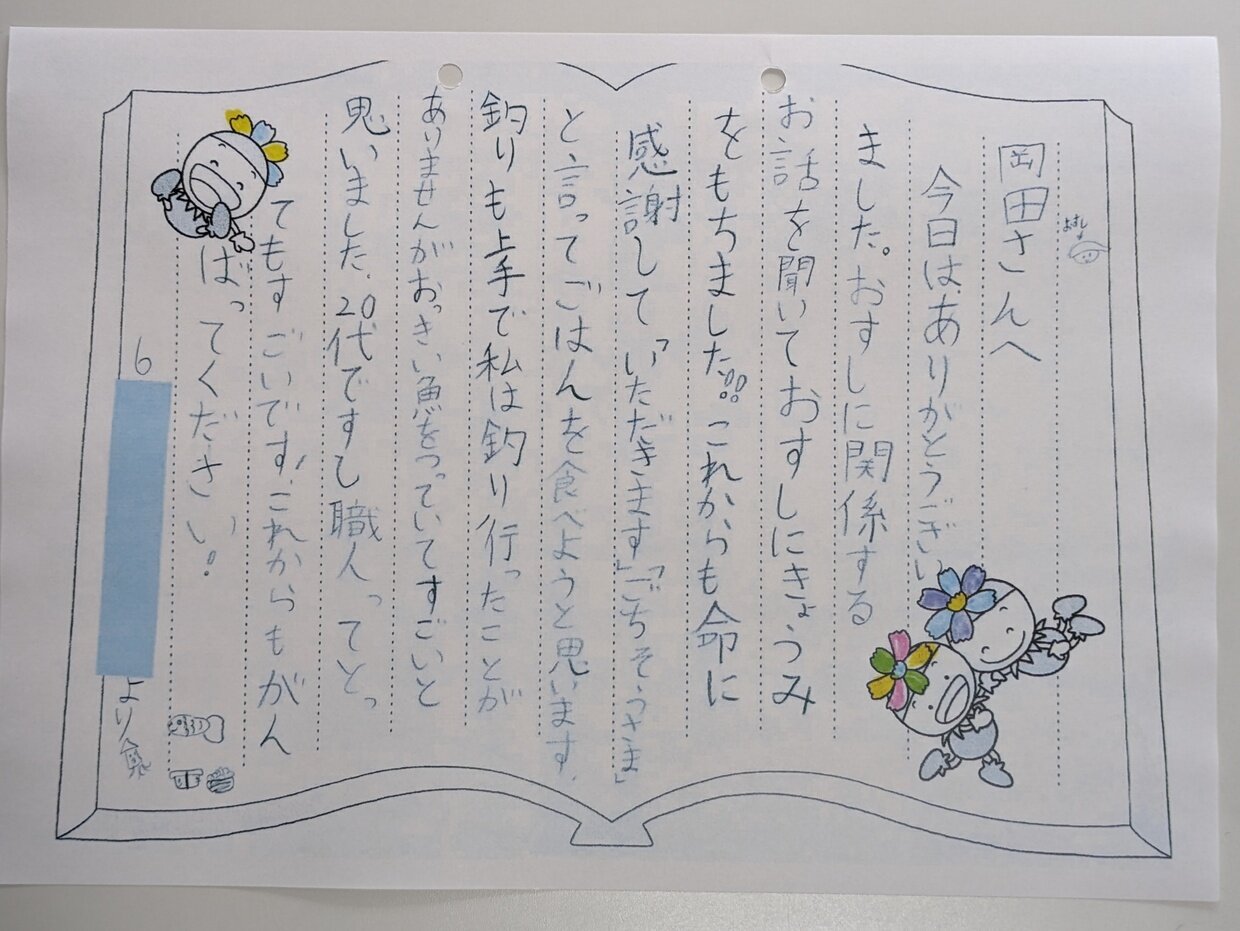 おすし
岡田さんへ
今日はありがとうござい
ました。おすしに関係する
お話を聞いておすしにきょうみ
をもちました!!!これからも命に
感謝して「いただきます」「ごちそうさま」
と言ってごはんを食べようと思います。
釣りも上手で私は釣り行ったことが
ありませんがおっきい魚をつっていてすごいと
思いました。20代ですし職人ってとっ
てもすごいです!これからもがん
ばってください!
6
より